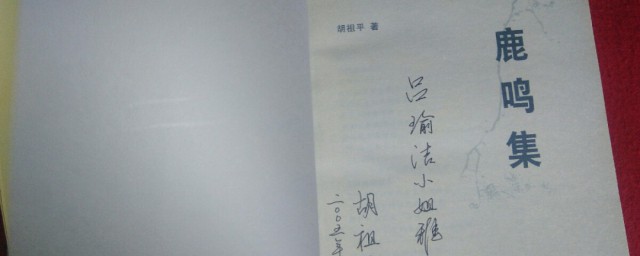 胡祖平 著
鹿鸣集
吕瑜洁小姐雅
胡祖
二〇〇五年